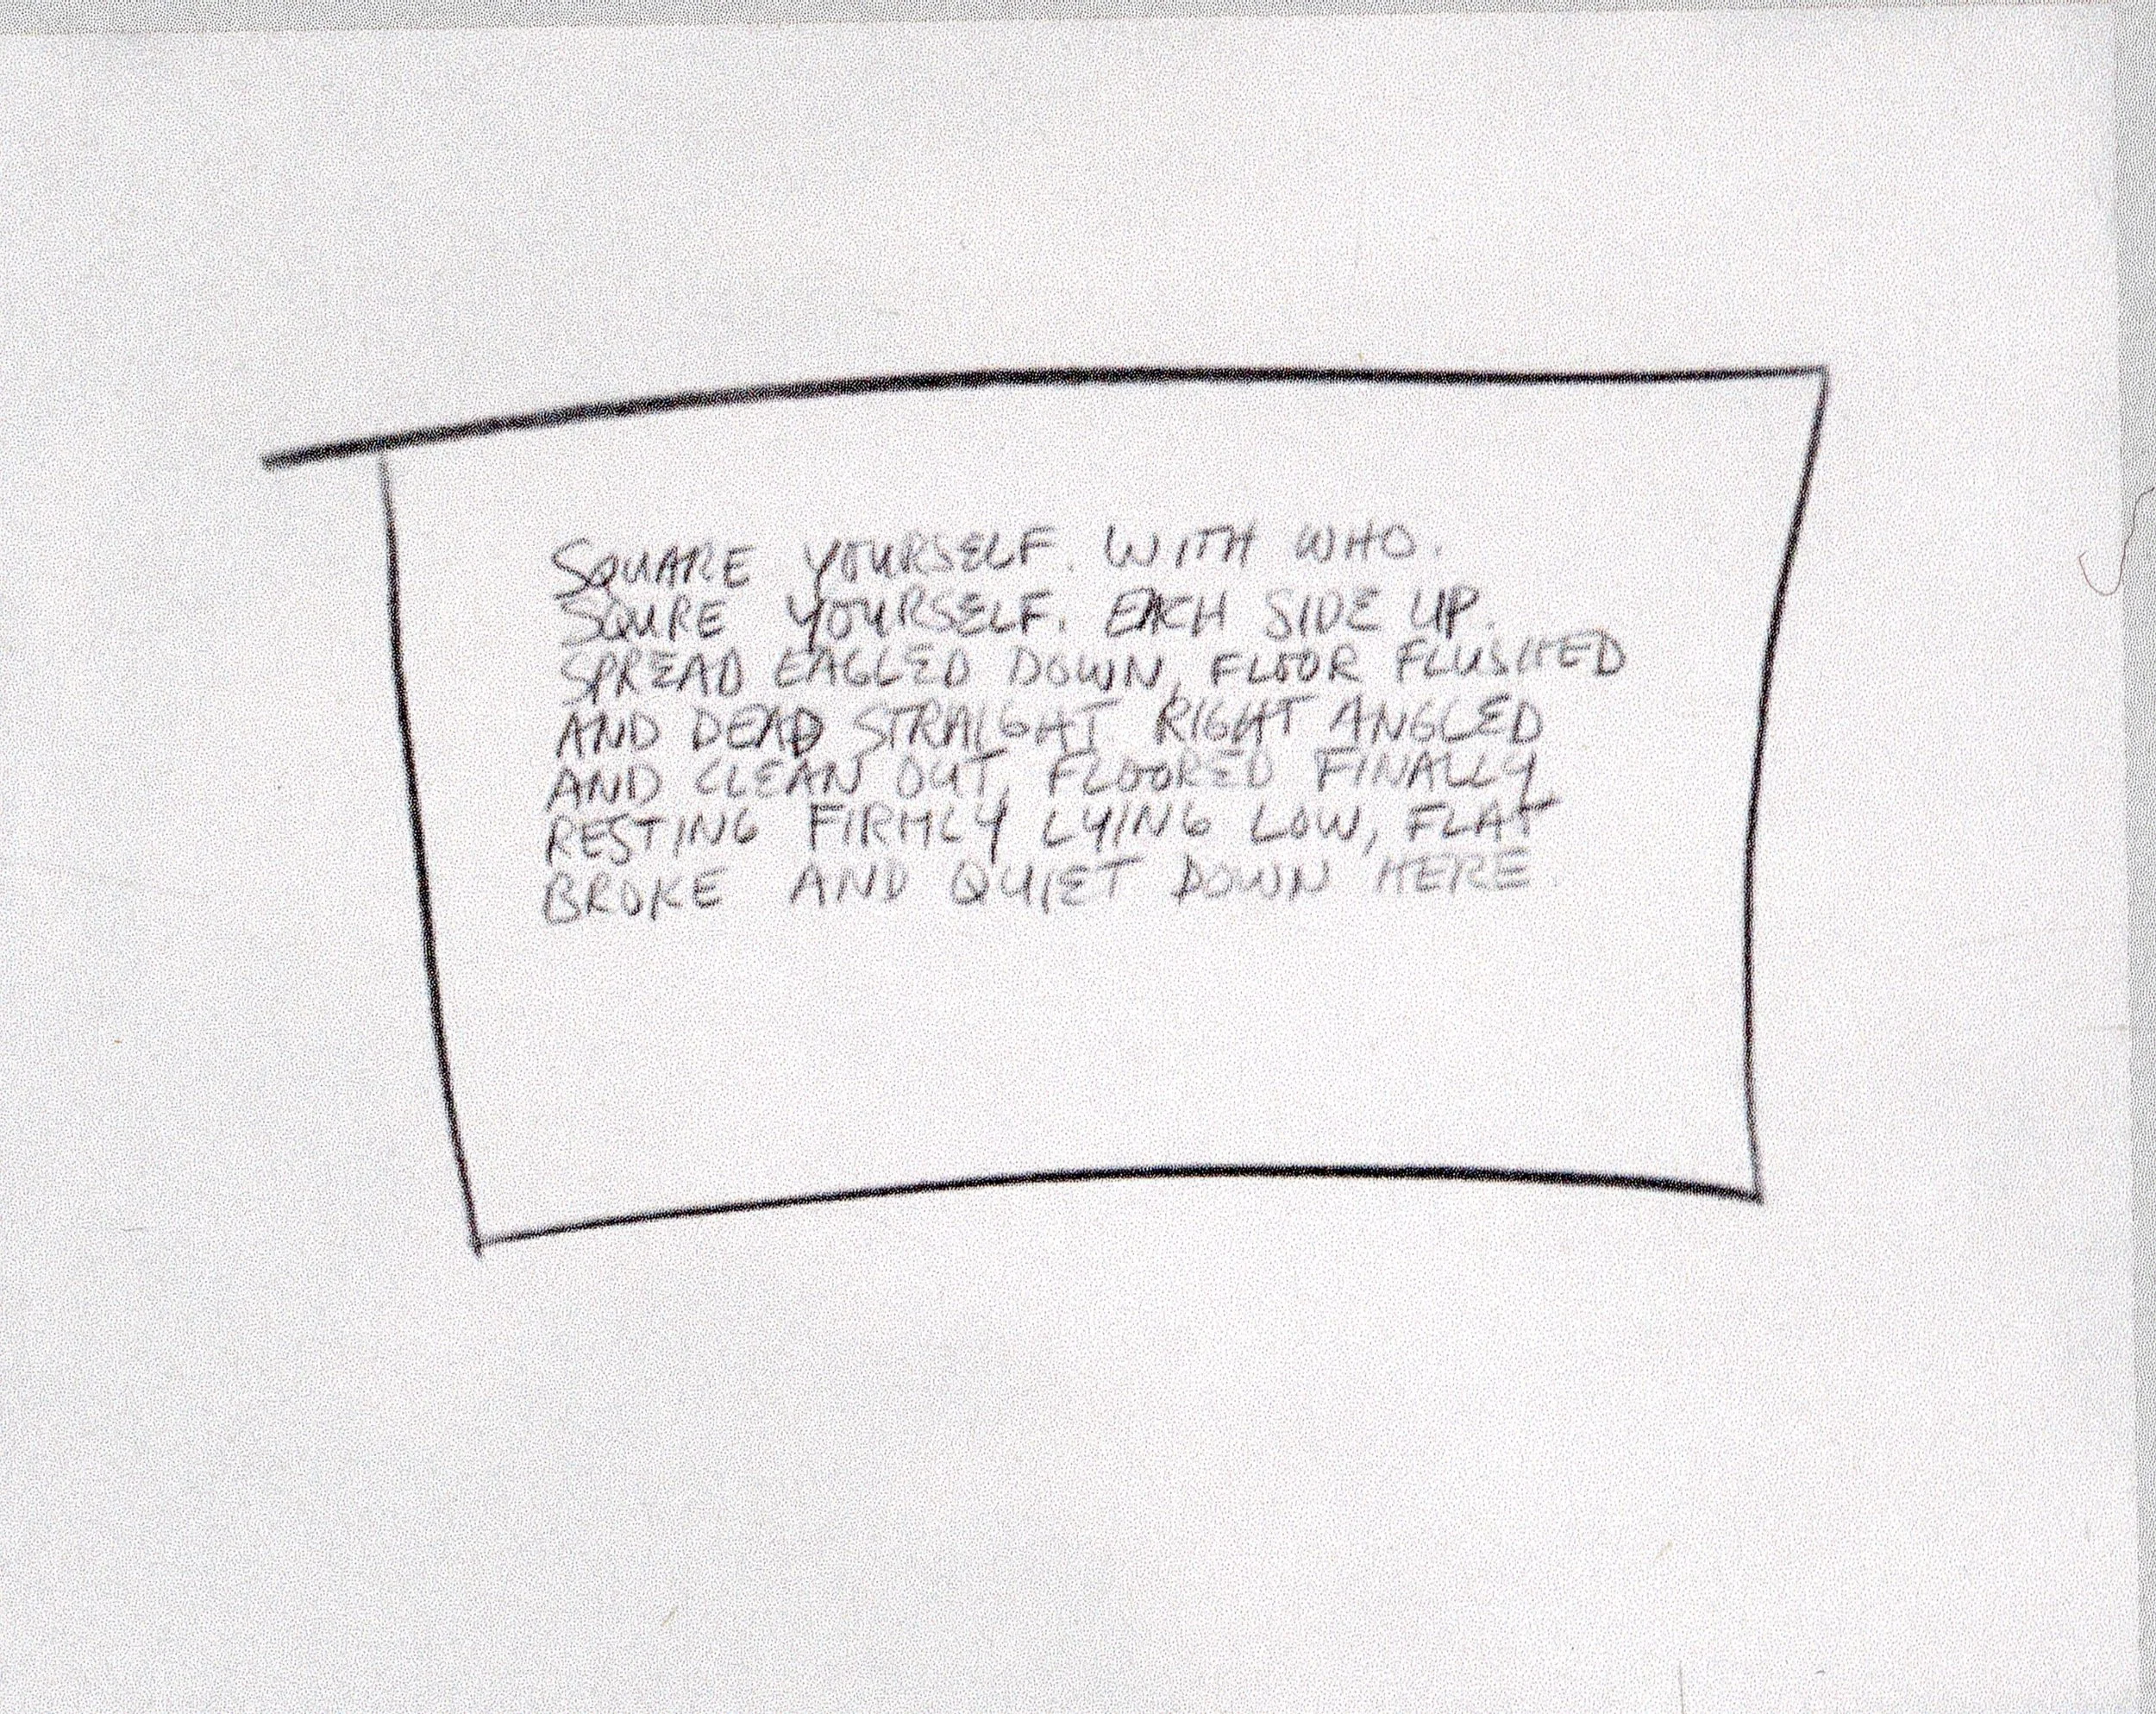 SQUARE YOURSELF. WITH WHO.
SQURE YOURSELF. EACH SIDE UP.
SPREAD EAGLED DOWN, FLOOR FLUSHED
AND DEAD STRAIGHT RIGHT ANGLED
AND CLEAN OUT, FLOORED FINALLY
RESTING FIRMLY LYING LOW, FLAT
BROKE AND QUIET DOWN HERE.